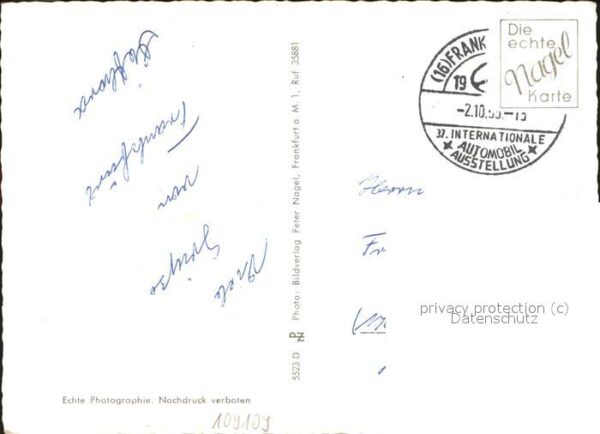 Viele
Grüße
von
Frankfurt
Photo: Bildverlag Peter Nagel, Frankfurt a. M. 1, Ruf 35881
5523 D
(16) FRANK
19
-2.10.
37. INTERNATIONALE
AUTOMOBIL
AUSSTELLUNG
Die
echte
Nagel
Karte
Herrn
Fr
privacy protection (c)
Datenschutz
Echte Photographie. Nachdruck verboten
109109